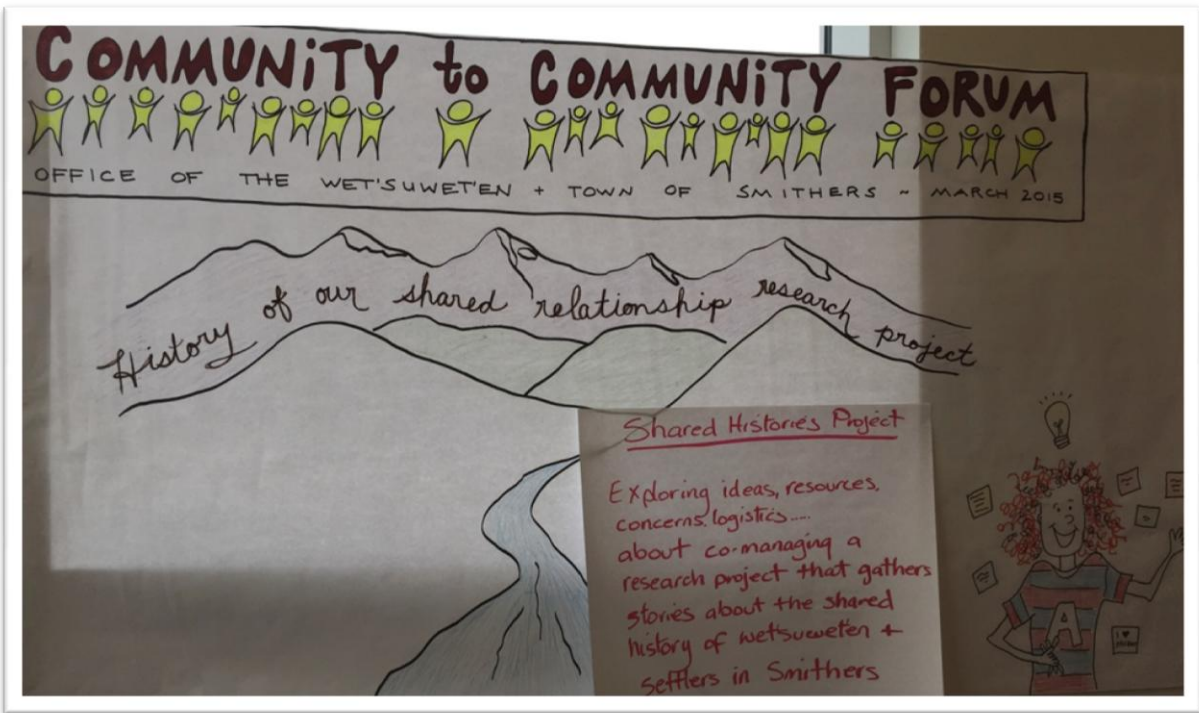 COMMUNITY to COMMUNITY FORUM
OFFICE OF THE WET'SUWET'EN + TOWN OF SMITHERS ~ MARCH 2015
History of our shared relationship research project
Shared Histories Project
Exploring ideas, resources,
concerns, logistics.....
about co-managing a
research project that gathers
stories about the shared
history of wet'suweten +
settlers in Smithers
A
I ♥